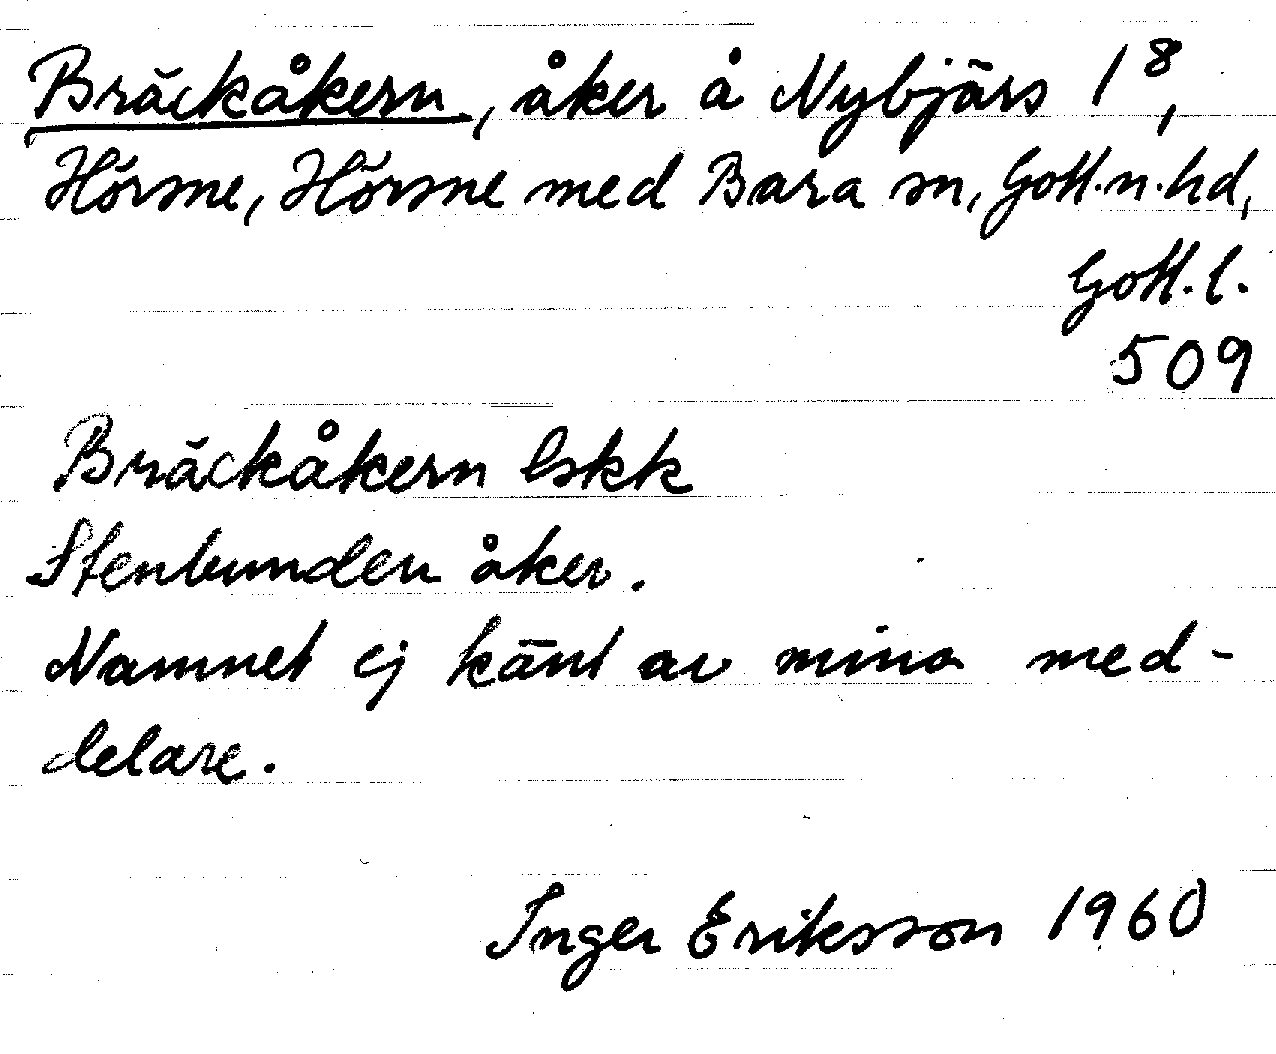 Bräckåkern, åker å Nybjärs 1⁸,
Hörsne, Hörsne med Bara sn, Gotl.n.hd,
Gotl.l.
509
Bräckåkern lskk
Stenbunden åker.
Namnet ej känt av mina med-
delare.
Inger Eriksson 1960